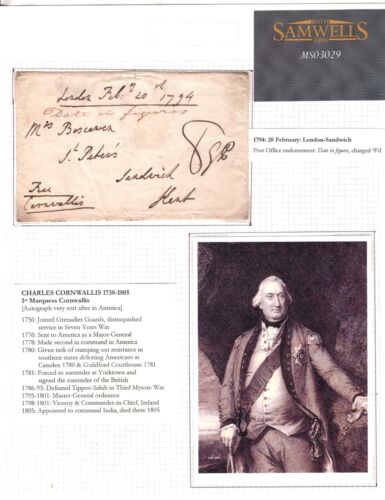 BATH
SAMWELLS
MS03029
London Feb.ʸ 20ᵗʰ 1794
Date in figures
Mʳˢ Boscawen
Sᵗ Peter's
Sandwich
Kent
Free
Cornwallis
1794: 20 February: London-Sandwich
Post Office endorsement: Date in figures, charged '8'd
CHARLES CORNWALLIS 1738-1805
1ˢᵗ Marquess Cornwallis
[Autograph very sort after in America]
1756: Joined Grenadier Guards, distinguished
service in Seven Years War
1776: Sent to America as a Major-General
1778: Made second in command in America
1780: Given task of stamping out resistance in
southern states defeating Americans at
Camden 1780 & Guildford Courthouse 1781
1781: Forced to surrender at Yorktown and
signed the surrender of the British
1786-93: Defeated Tippoo Sahib in Third Mysore War
1795-1801: Master-General ordnance
1798-1801: Viceroy & Commander-in-Chief, Ireland
1805: Appointed to command India, died there 1805